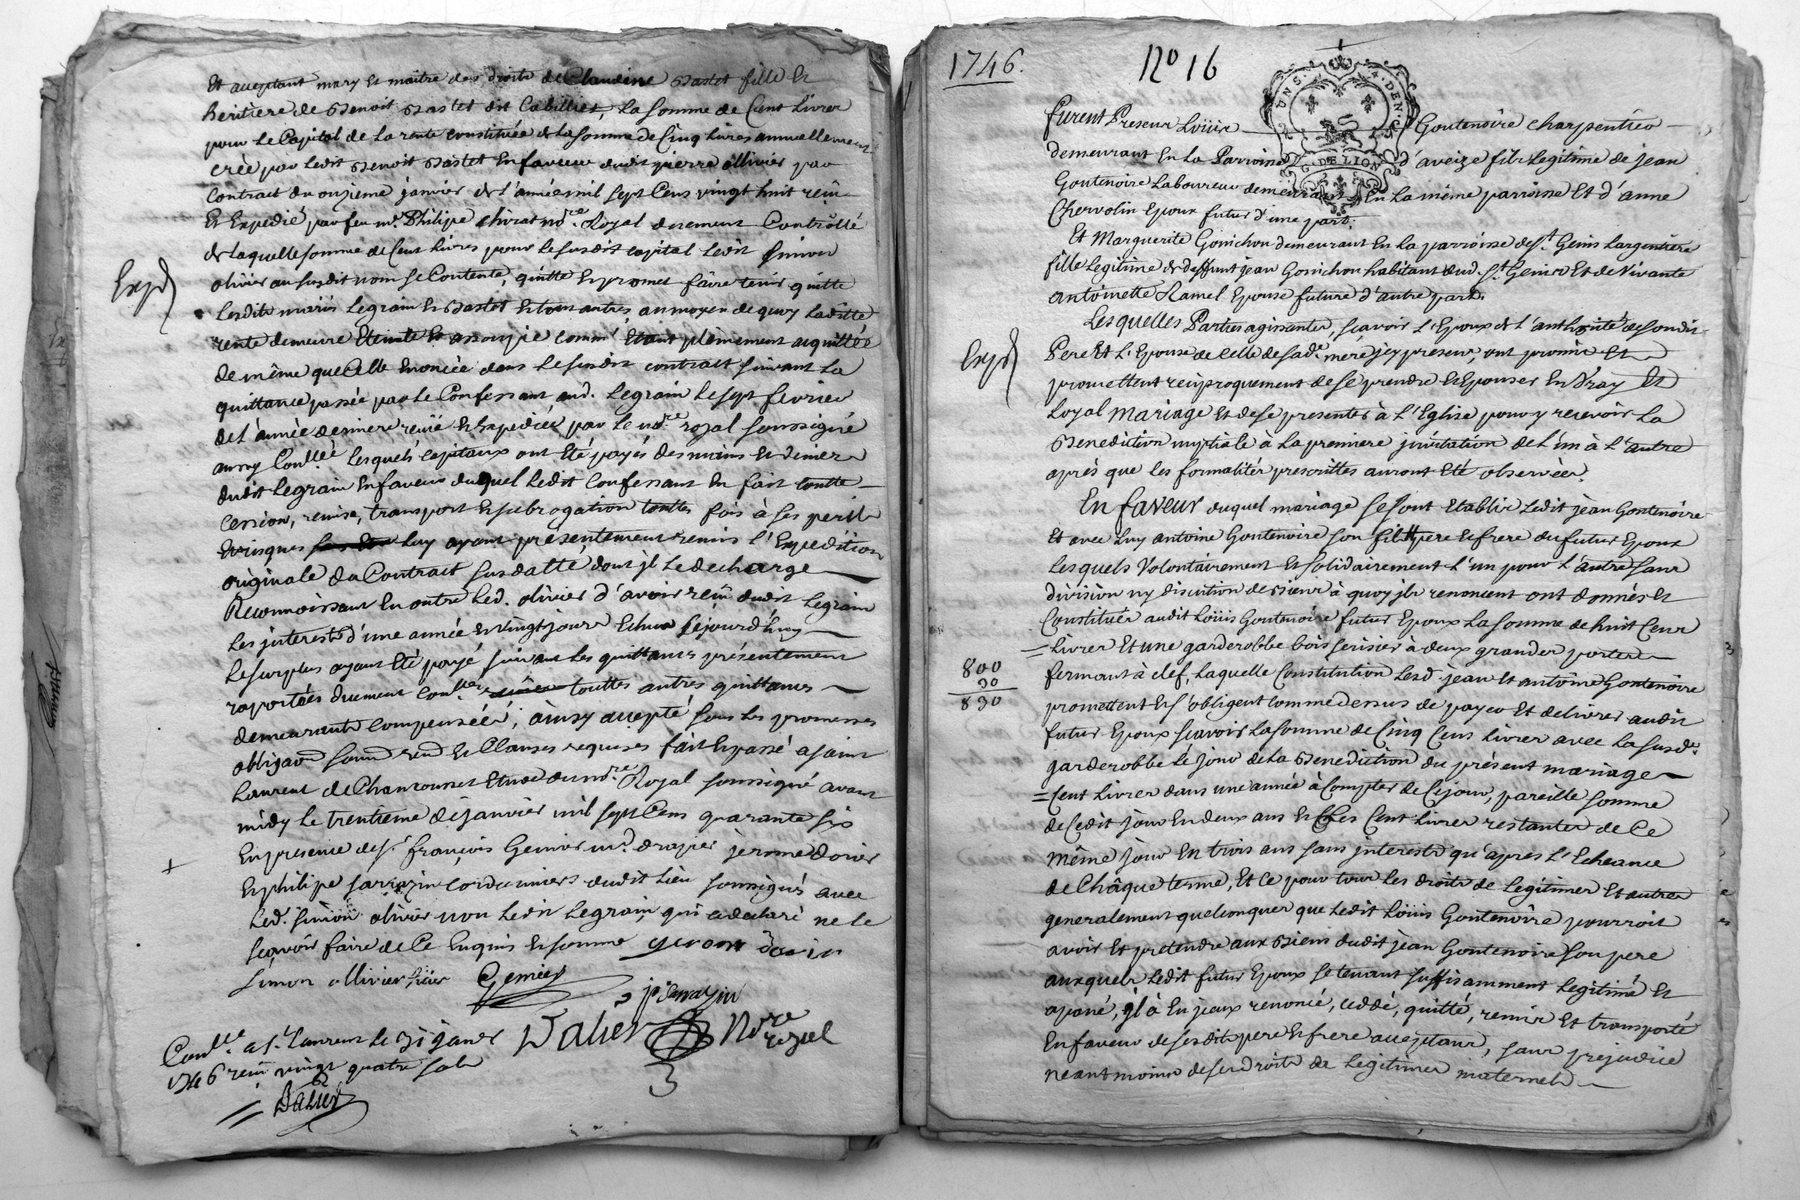 Et acceptant mary et maitre des droits de Claudine Bastet fille et
heritiere de Benoit Bastet dit Cabilliet, la somme de Cent Livres
pour le Capital de la rente constituée de la somme de Cinq livres annuellement
créé par ledit Benoit Bastet en faveur dudit pierre ollivier par
Contract du onzieme janvier de l'année mil sept Cens vingt huit reçu
Et Expedié par feu me. Philipe chirat nore. Royal duement Controllé
de laquelle somme de Cent livres pour le susdit capital ledit Simon
olivier au susdit nom se Contente, quitte et promet faire tenir quitte
Lesdits mariés Legrain et Bastet et tous autres au moyen de quoy laditte
rente demeure Eteinte et assoupie comm' Etant pleinement acquittée
de même que Celle Enoncée dans le susdit contract suivant la
quittance passée par le Confessant aud. Legrain le sept fevrier
de l'année derniere reçüe et Expediée par le nore. royal soussigné
aussy Conllée Lesquels capitaux ont été payés des mains et deniers
dudit Legrain en faveur duquel ledit Confessant en fait toutte
Cession, remise, transport et subrogation touttes fois à ses perils
et risques luy ayant présentement remis l'Expedition
originale du Contract susdatté, dont il le decharge
Reconnoissant En outre led. olivier d'avoir reçu dudit Legrain
Les interests d'une année et vingt jours Echus ce jourd'huy
le surplus ayant été payé suivant les quittances présentement
raportées duement conllées touttes autres quittances
demeurants compensées, ainsy accepté sous les promesses
obligaon soumon renon et Clauses requises fait et passé a saint
Laurent de Chamousset Etude du nore. Royal soussigné avant
midy le trentieme de janvier mil sept Cens quarante six
En presence de sr. françois Genier md. drapier jerome dovier
et philipe sarrazin cordonniers dudit lieu soussignés avec
led. Simon olivier non ledit Legrain qui a declaré ne le
sçavoir faire de ce Enquis et sommé
Simon ollivier
Genier
Expd
+
Conllé. a st. Laurent le 31 janvr
1746 reçu vingt quatre sols
Nore
royal
1746.
No 16
DE LION
Furent Presens Loüis Goutenoire charpentier
demeurant En la Parroisse d'aveize fils Legitime de jean
Goutenoire Laboureur demeurant En la même parroisse Et d'anne
Chervolin Epoux futur d'une part.
Et Marguerite Gonichon demeurant En la parroisse de St. Genis Largentiere
fille Legitime de deffunt jean Gonichon habitant dud. St. Genis Et de Vivante
antoinette Ramel Epouse future d'autre part.
Lesquelles Parties agissantes, sçavoir l'Epoux de l'authorité de sondit
Expd
Pere Et l'Epouse de celle de sade. mere jcy presens, ont promis Et
promettent reciproquement de se prendre et Epouser En Vray Et
Loyal Mariage Et de se presenter à l'Eglise pour y recevoir La
Benediction nuptiale à la premiere jnvitation de l'un à l'autre
après que les formalités prescrittes auront Eté observées.
En faveur duquel mariage se sont Etablis ledit jean Goutenoire
Et avec luy antoine Goutenoire son fils pere et frere du futur Epoux
Lesquels Volontairement et solidairement l'un pour l'autre sans
division ny discution de biens à quoy jls renoncent ont donnés et
Constitués audit Loüis Goutenoire futur Epoux la somme de huit Cens
Livres Et une garderobbe bois serisier à deux grandes portes
fermant à clef, Laquelle Constitution Lesd. jean et antoine Goutenoire
promettent et s'obligent comme dessus de payer Et delivrer audit
futur Epoux sçavoir la somme de Cinq Cens Livres avec la susde.
garderobbe le jour de la Benediction du présent mariage
Cent Livres dans une année à Compter de Ce jour, pareille somme
de Cedit jour En deux ans et les Cent Livres restantes de Ce
même jour En trois ans sans jnterests qu'après l'Echeance
de Châque terme, Et ce pour tous les droits de Legitimes Et autres
generalement quelconques que ledit Loüis Goutenoire pourroit
avoir Et pretendre aux Biens dudit jean Goutenoire son pere
auxquels ledit futur Epoux se tenant suffisamment Legitimé Et
apané, jl à En jceux renoncé, ceddé, quitté, remis Et transporté
En faveur de sesdits pere et frere acceptans, sans prejudice
neantmoins de ses droits de Legitimes maternels
800
90
890